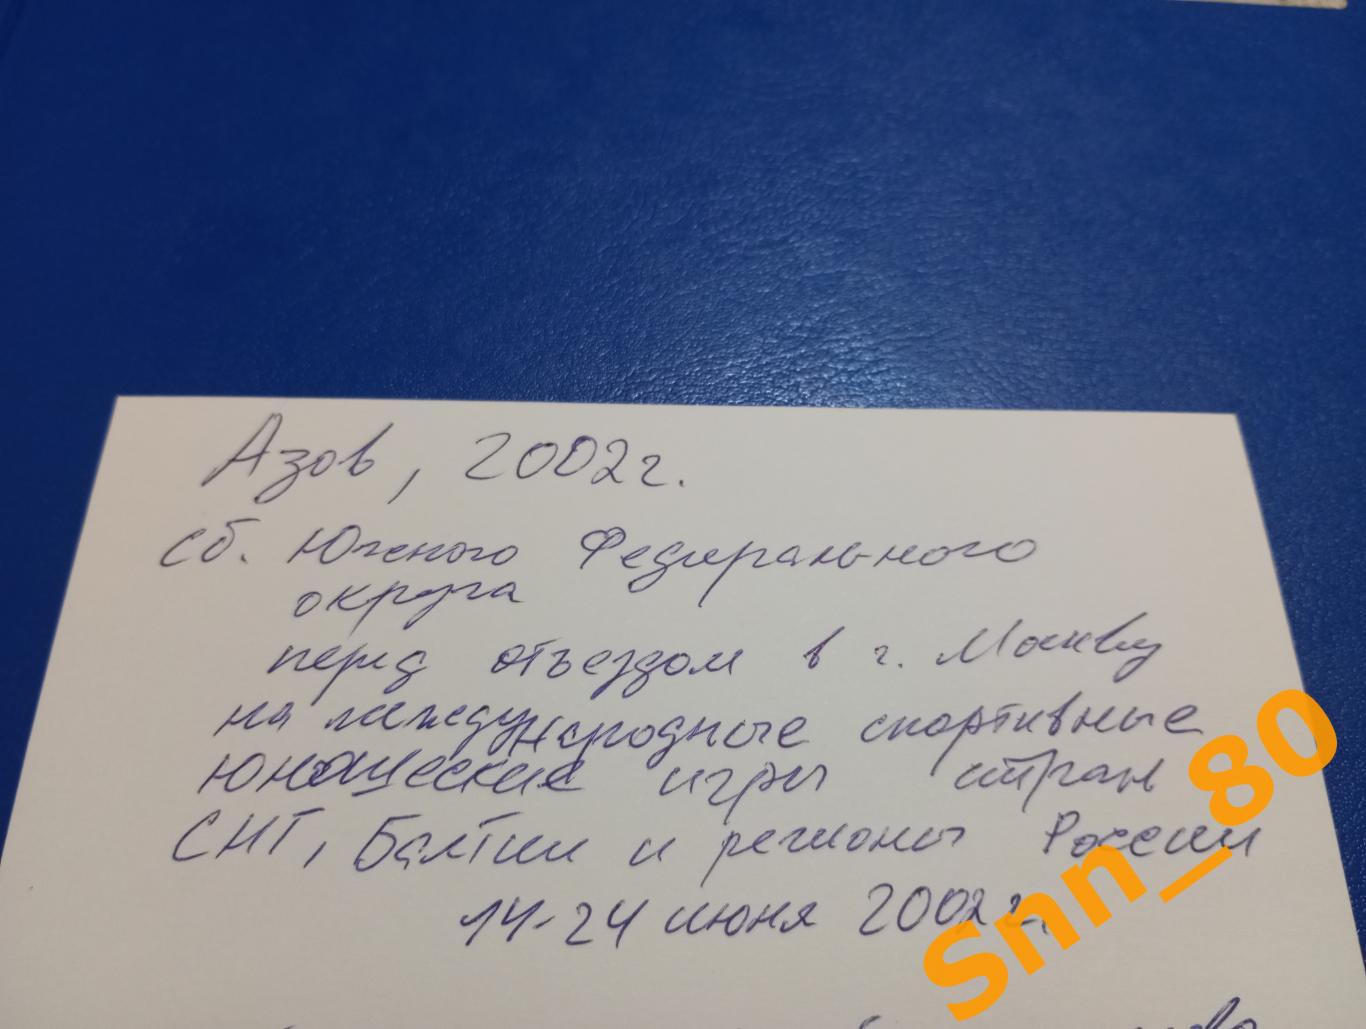 Азов, 2002 г.
сб. Южного Федерального
округа
перед отъездом в г. Москву
на международные спортивные
юношеские игры стран
СНГ, Балтии и регионы России
14-24 июня 2002 г.
Snn_80